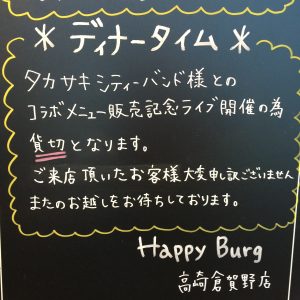 * ディナータイム *
タカサキシティーバンド様との
コラボメニュー販売記念ライブ開催の為
貸切となります。
ご来店頂いたお客様大変申し訳ございません
またのお越しをお待ちしております。
Happy Burg
高崎倉賀野店